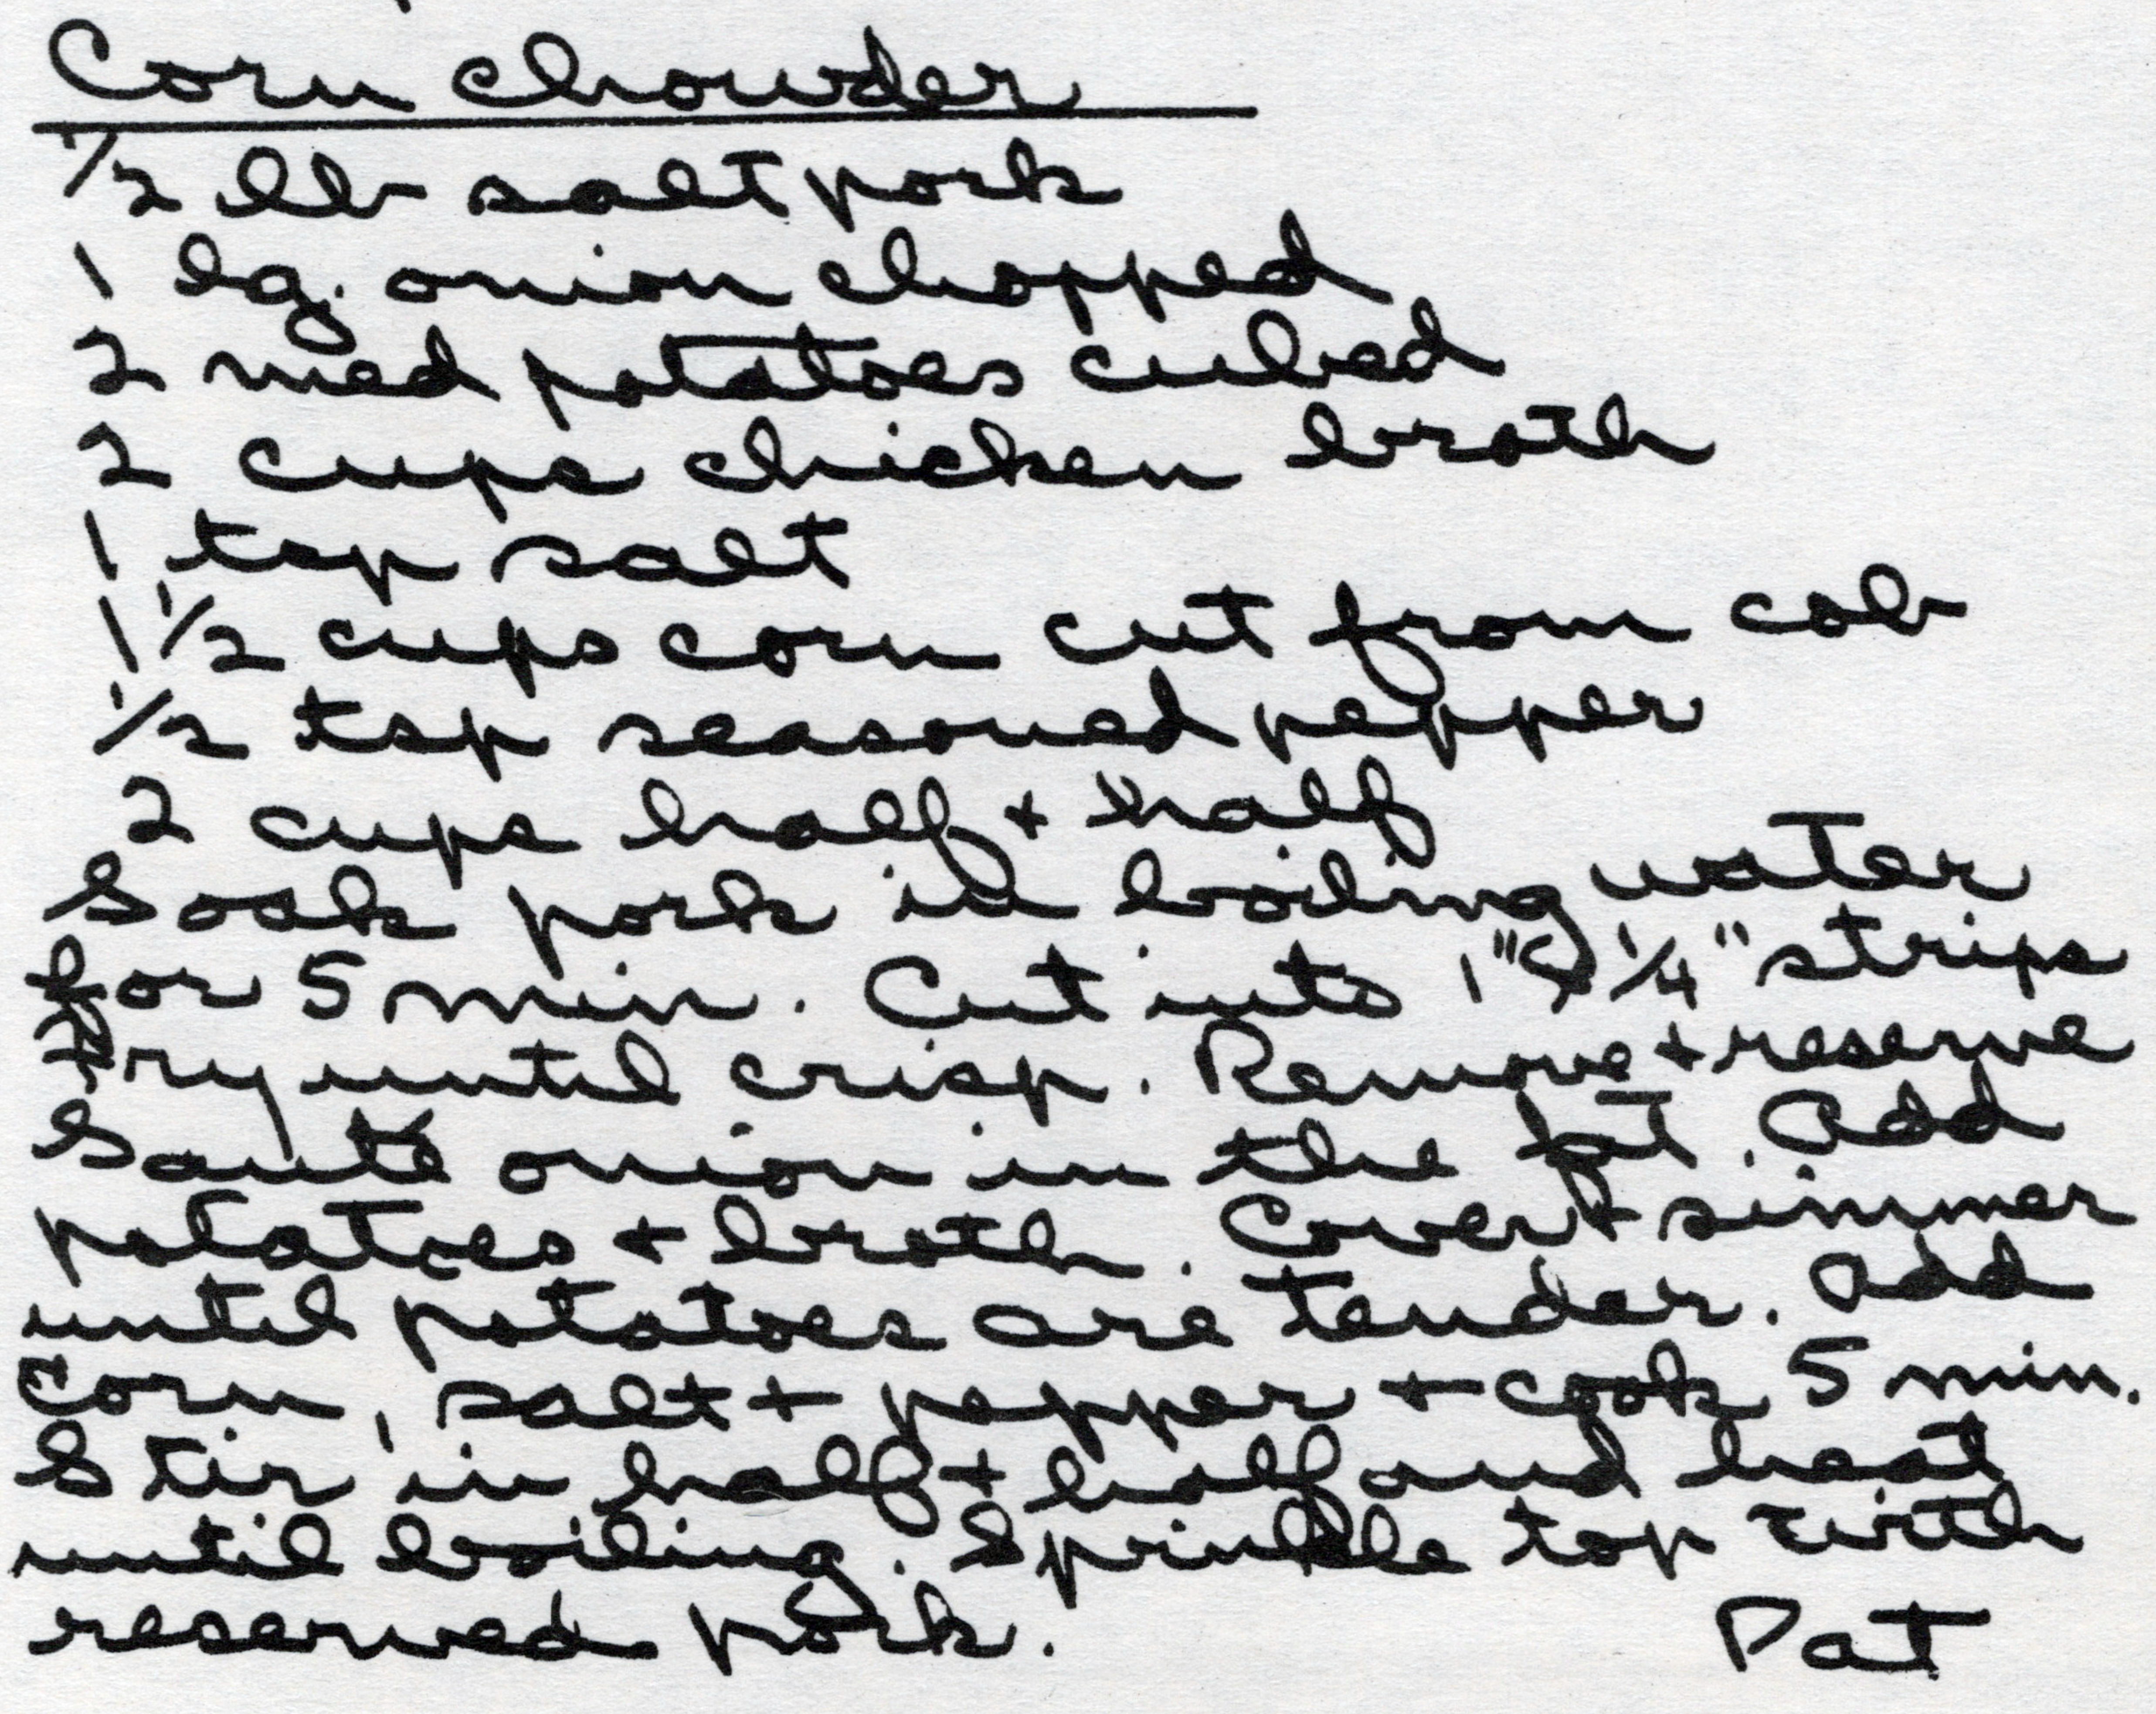 Corn Chowder
1/2 lb salt pork
1 lg. onion chopped
2 med potatoes cubed
2 cups chicken broth
1 tsp salt
1 1/2 cups corn cut from cob
1/2 tsp seasoned pepper
2 cups half + half
Soak pork in boiling water
for 5 min. Cut into 1" 1/4" strips
Fry until crisp. Remove + reserve
Sauté onion in the fat. Add
potatoes + broth. Cover + simmer
until potatoes are tender. Add
corn, salt + pepper + cook 5 min.
Stir in half + half and heat
until boiling. Sprinkle top with
reserved pork.
Pat